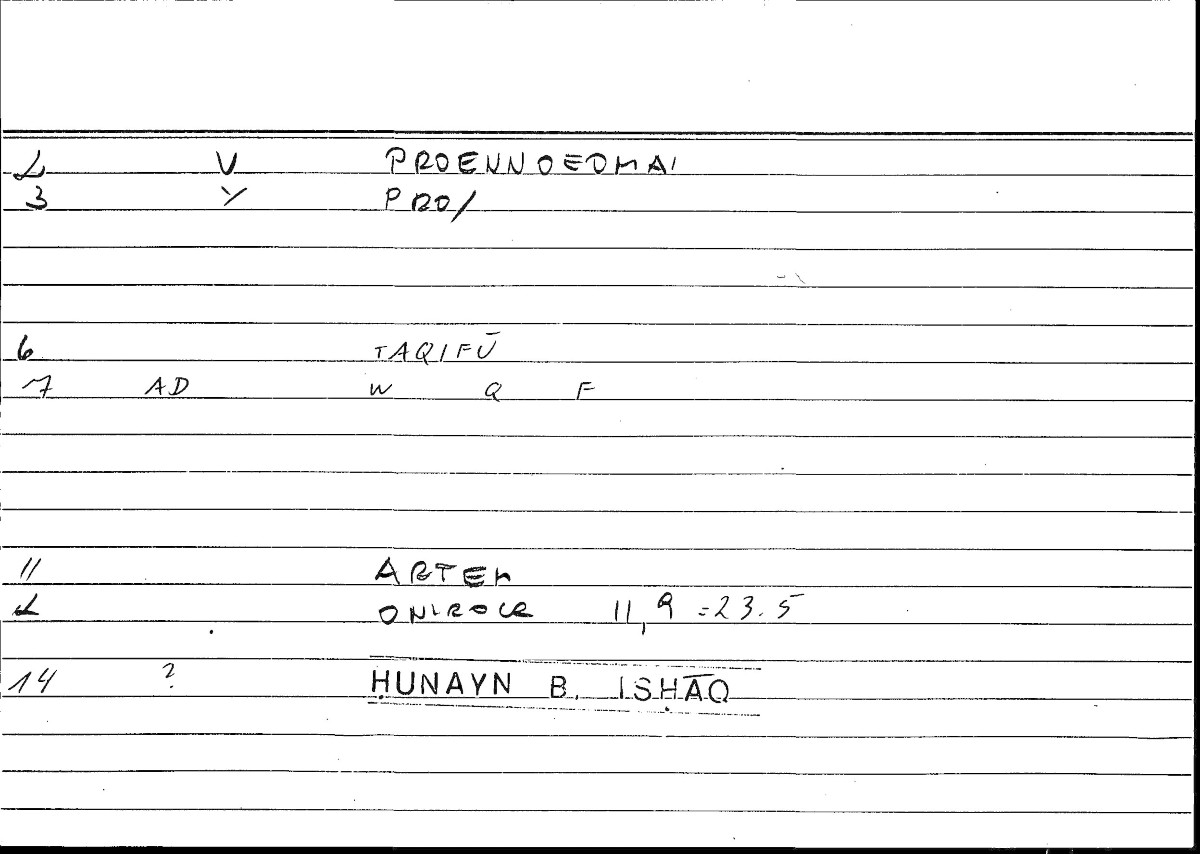 2 V PROENNOEOMAI
3 Y PRO/
6 TAQIFŪ
7 AD W Q F
11 ARTEM
2 ONIROCR 11,9 =23.5
14 ? ḤUNAYN B. ISḤĀQ